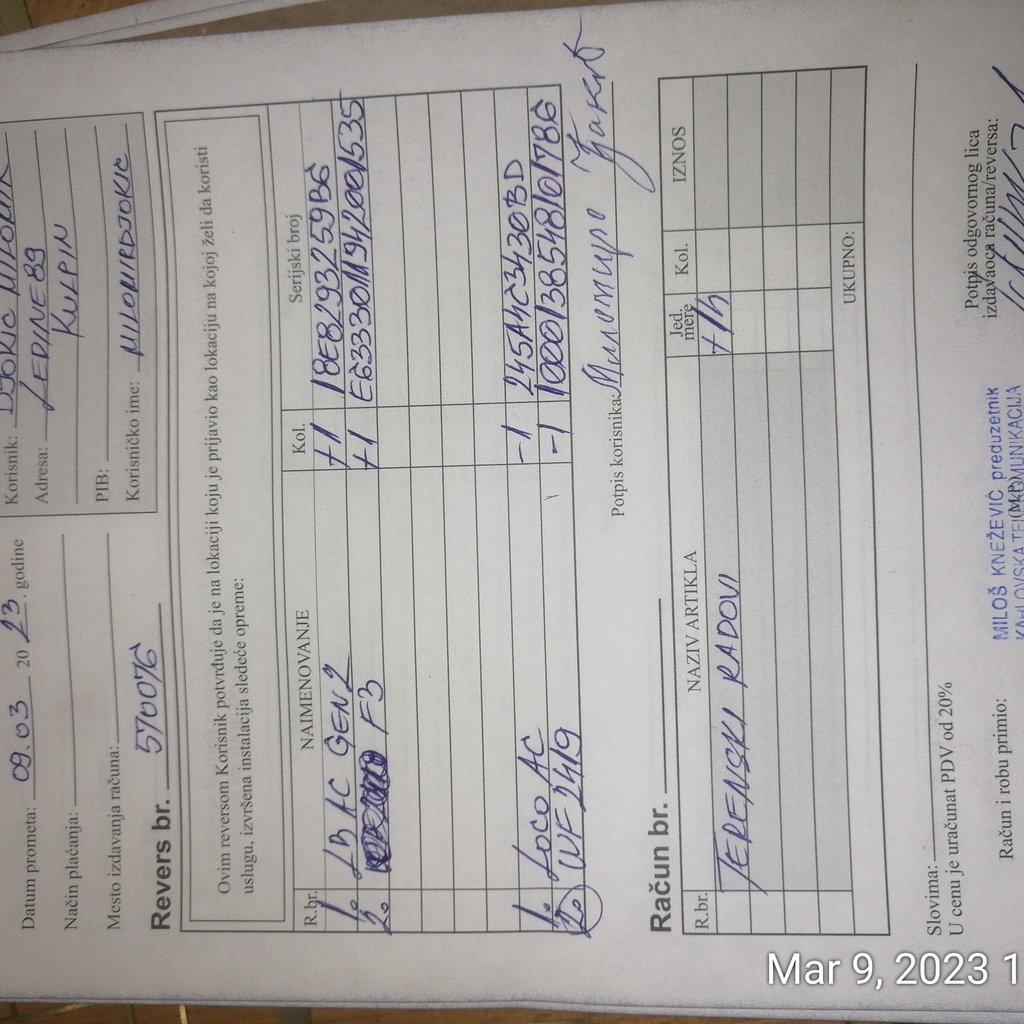 Datum prometa: 09.03 2023. godine
Način plaćanja:
Mesto izdavanja računa:
Korisnik: DJOKIC
Adresa: LEDINE 89
KULPIN
PIB:
Korisničko ime: MILOMIRDJOKIC
570076
Revers br.
Ovim reversom Korisnik potvrđuje da je na lokaciji koju je prijavio kao lokaciju na kojoj želi da koristi
uslugu, izvršena instalacija sledeće opreme:
R.br. NAIMENOVANJE Kol. Serijski broj
1. LB AC GEN2 +1 18E8293259B6
2. F3 +1 E6333011942001535
1. LOCO AC -1 245A4C3430BD
2. WF2419 -1 1000138548101786
Potpis korisnika: Миломир Ђокић
Račun br.
R.br. NAZIV ARTIKLA Jed. mere Kol. IZNOS
TERENSKI RADOVI +1h
UKUPNO:
Slovima:
U cenu je uračunat PDV od 20%
Račun i robu primio:
MILOŠ KNEŽEVIĆ preduzetnik
(M.P.)
Potpis odgovornog lica
izdavaoca računa/reversa:
Mar 9, 2023 1